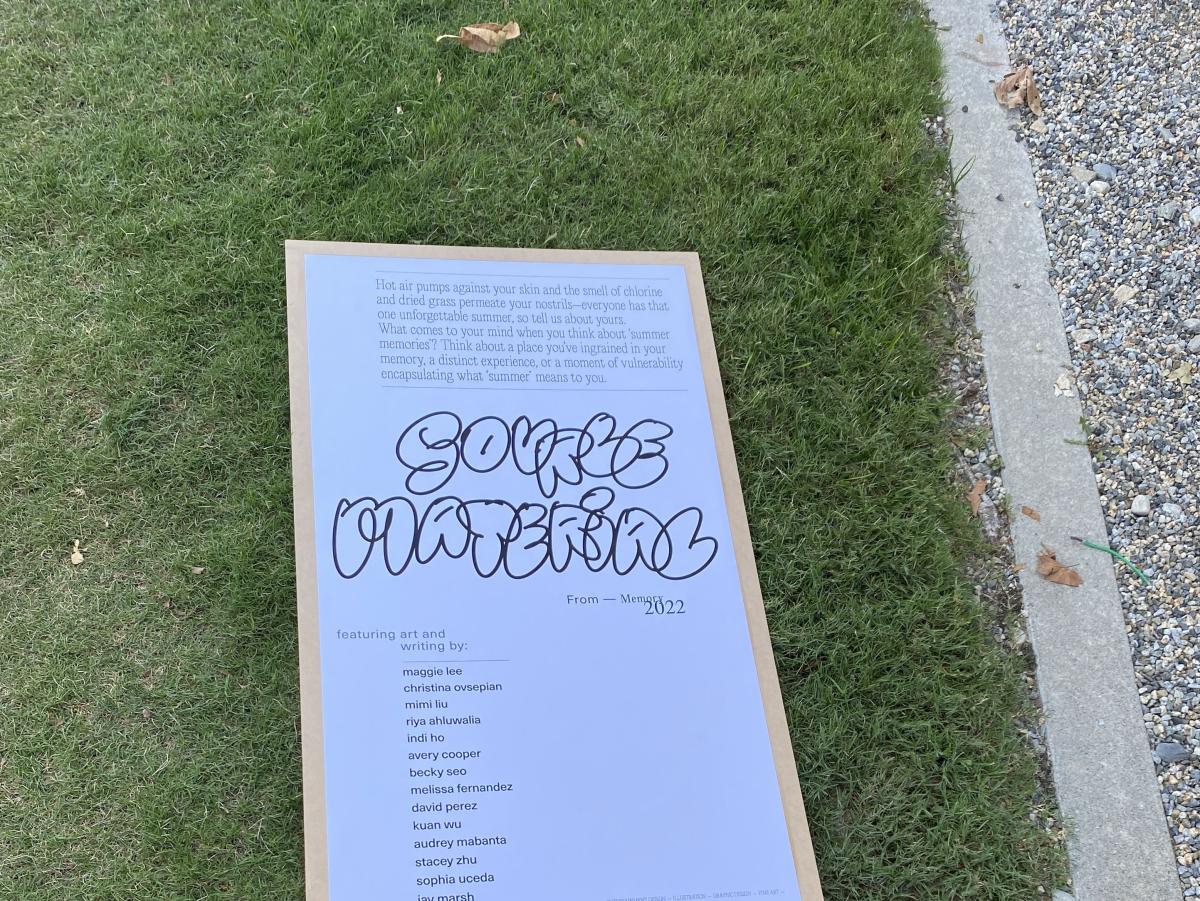 Hot air pumps against your skin and the smell of chlorine
and dried grass permeate your nostrils—everyone has that
one unforgettable summer, so tell us about yours.
What comes to your mind when you think about 'summer
memories'? Think about a place you've ingrained in your
memory, a distinct experience, or a moment of vulnerability
encapsulating what 'summer' means to you.
SOURCE
MATERIAL
From — Memory
2022
featuring art and
writing by:
maggie lee
christina ovsepian
mimi liu
riya ahluwalia
indi ho
avery cooper
becky seo
melissa fernandez
david perez
kuan wu
audrey mabanta
stacey zhu
sophia uceda
jay marsh
DESIGN — ILLUSTRATION — GRAPHIC DESIGN — FINE ART —